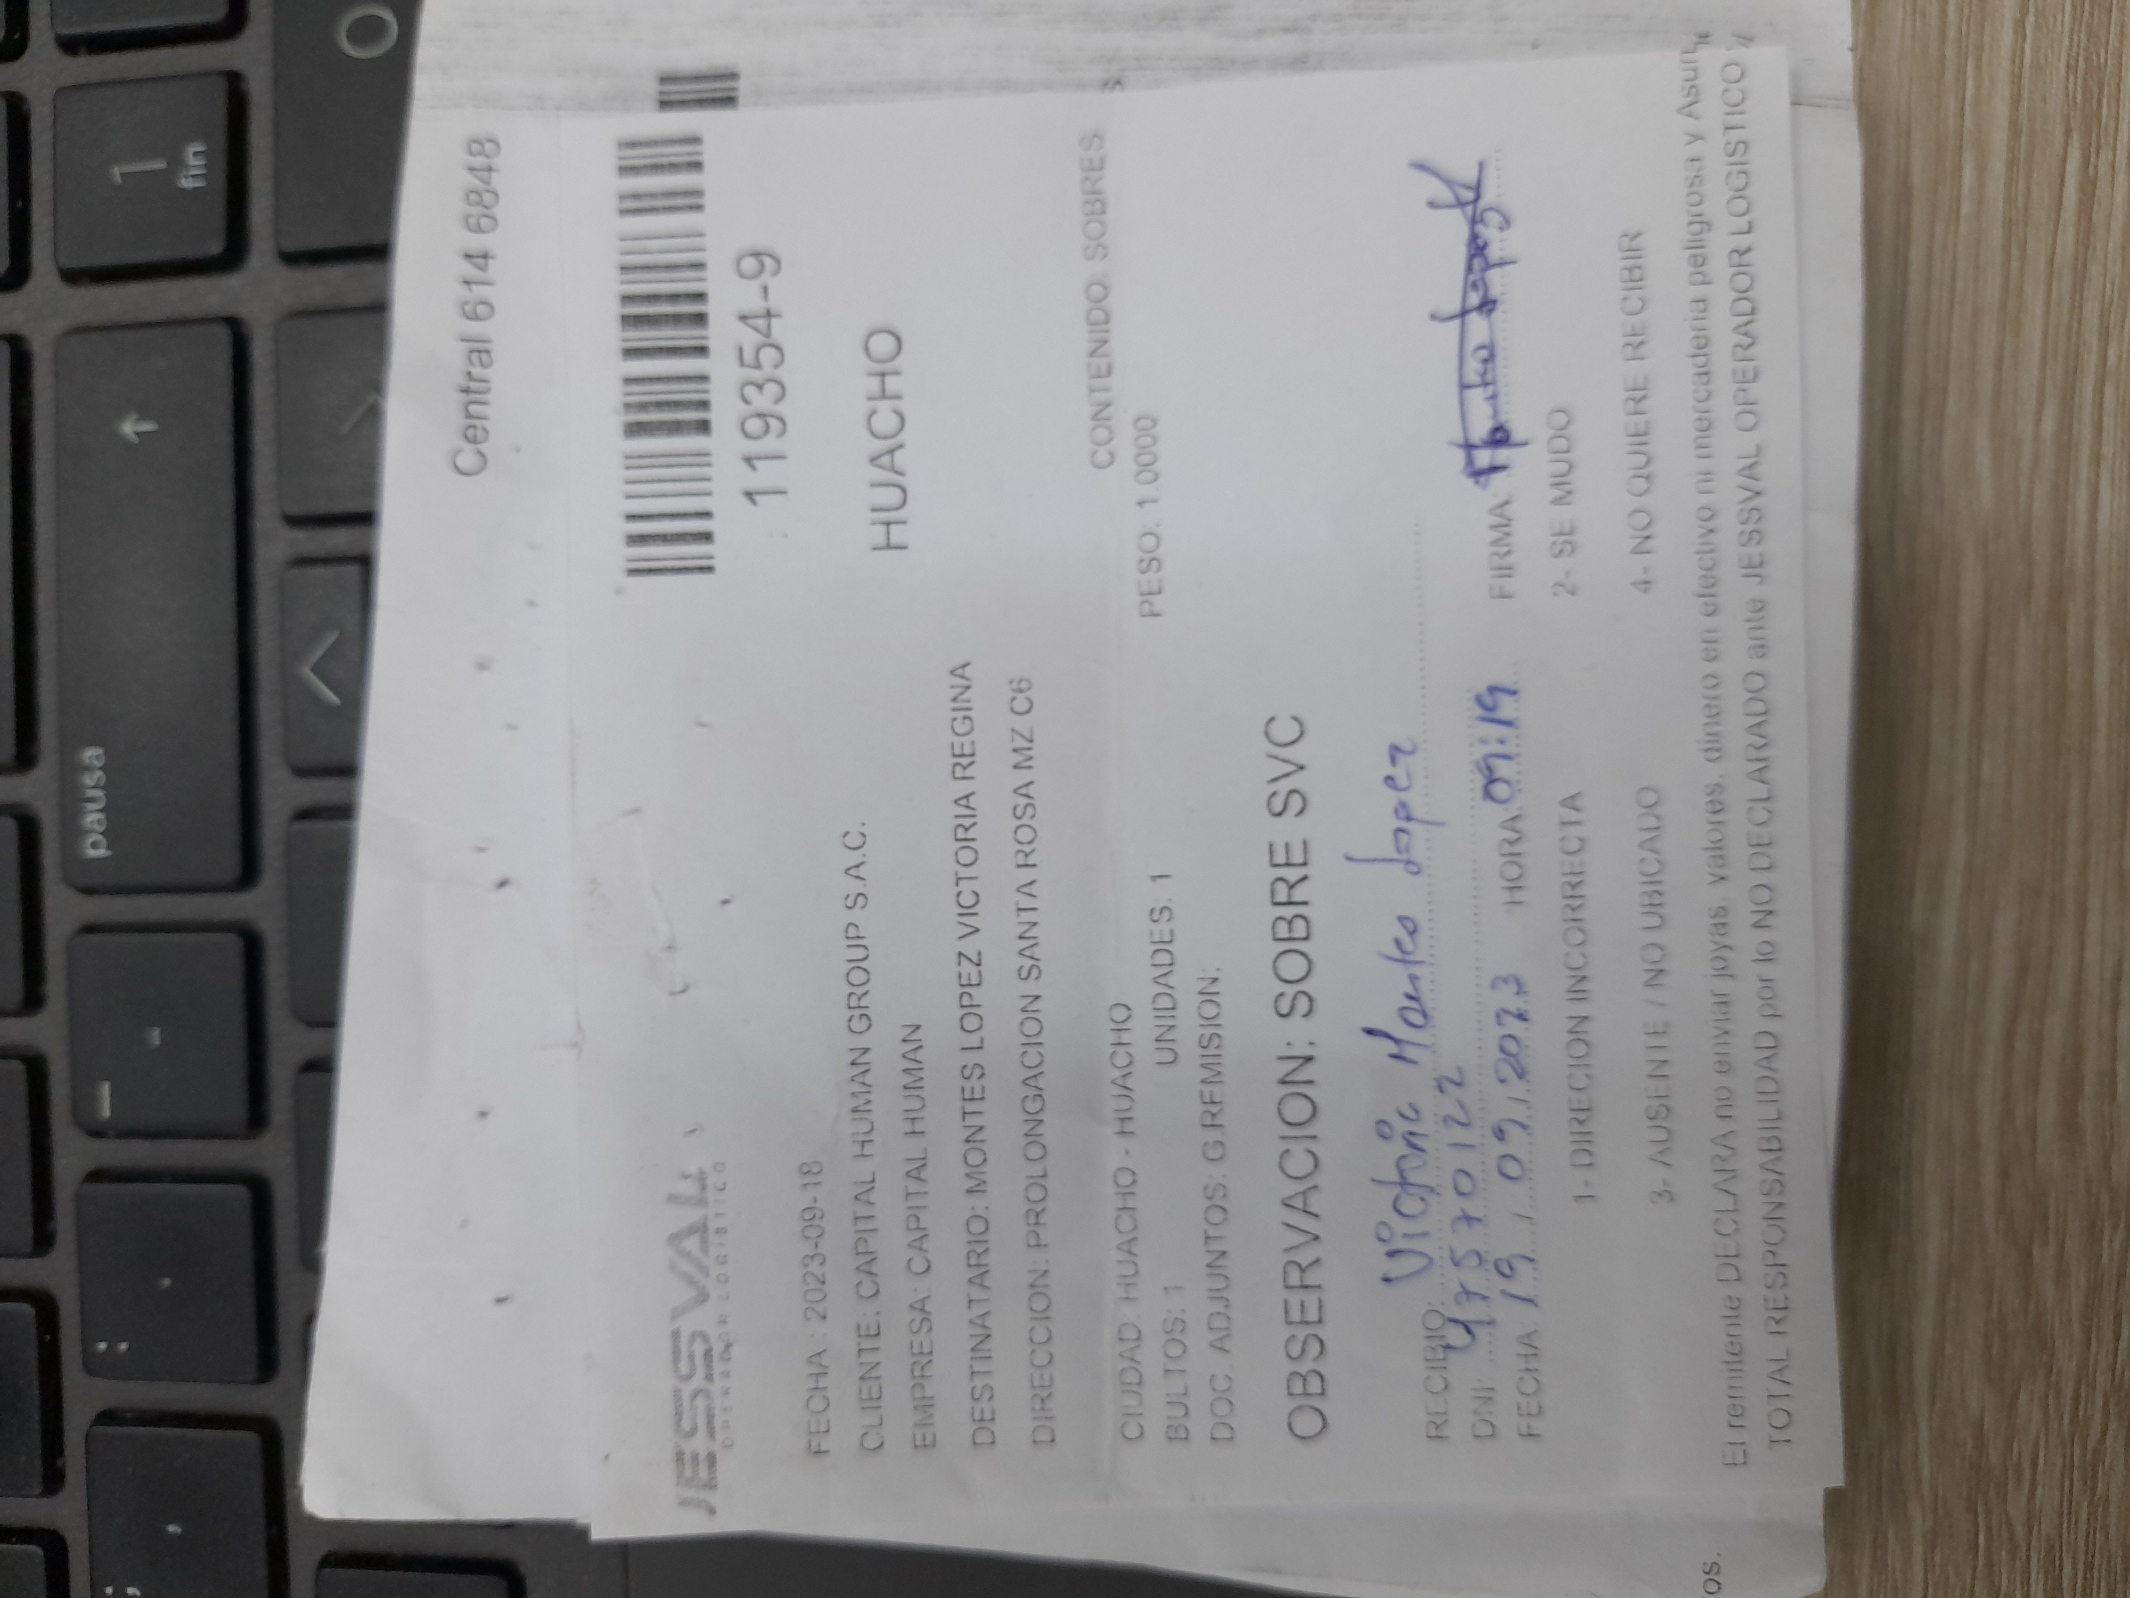 pausa
1
fin
Central 614 6848
JESSVAL
OPERADOR LOGISTICO
119354-9
FECHA : 2023-09-18
CLIENTE: CAPITAL HUMAN GROUP S.A.C.
HUACHO
EMPRESA: CAPITAL HUMAN
DESTINATARIO: MONTES LOPEZ VICTORIA REGINA
DIRECCION: PROLONGACION SANTA ROSA MZ C6
CONTENIDO: SOBRES
CIUDAD: HUACHO - HUACHO
BULTOS: 1 UNIDADES: 1 PESO: 1.0000
DOC. ADJUNTOS: G.REMISION:
OBSERVACION: SOBRE SVC
RECIBIO: Victoria Montes Lopez
DNI: 47570122
FECHA: 19 / 09 / 2023 HORA: 09:19 FIRMA: Lopez
1- DIRECION INCORRECTA 2- SE MUDO
3- AUSENTE / NO UBICADO 4- NO QUIERE RECIBIR
os.
El remitente DECLARA no enviar joyas, valores, dinero en efectivo ni mercaderia peligrosa y Asum
TOTAL RESPONSABILIDAD por lo NO DECLARADO ante JESSVAL OPERADOR LOGISTICO